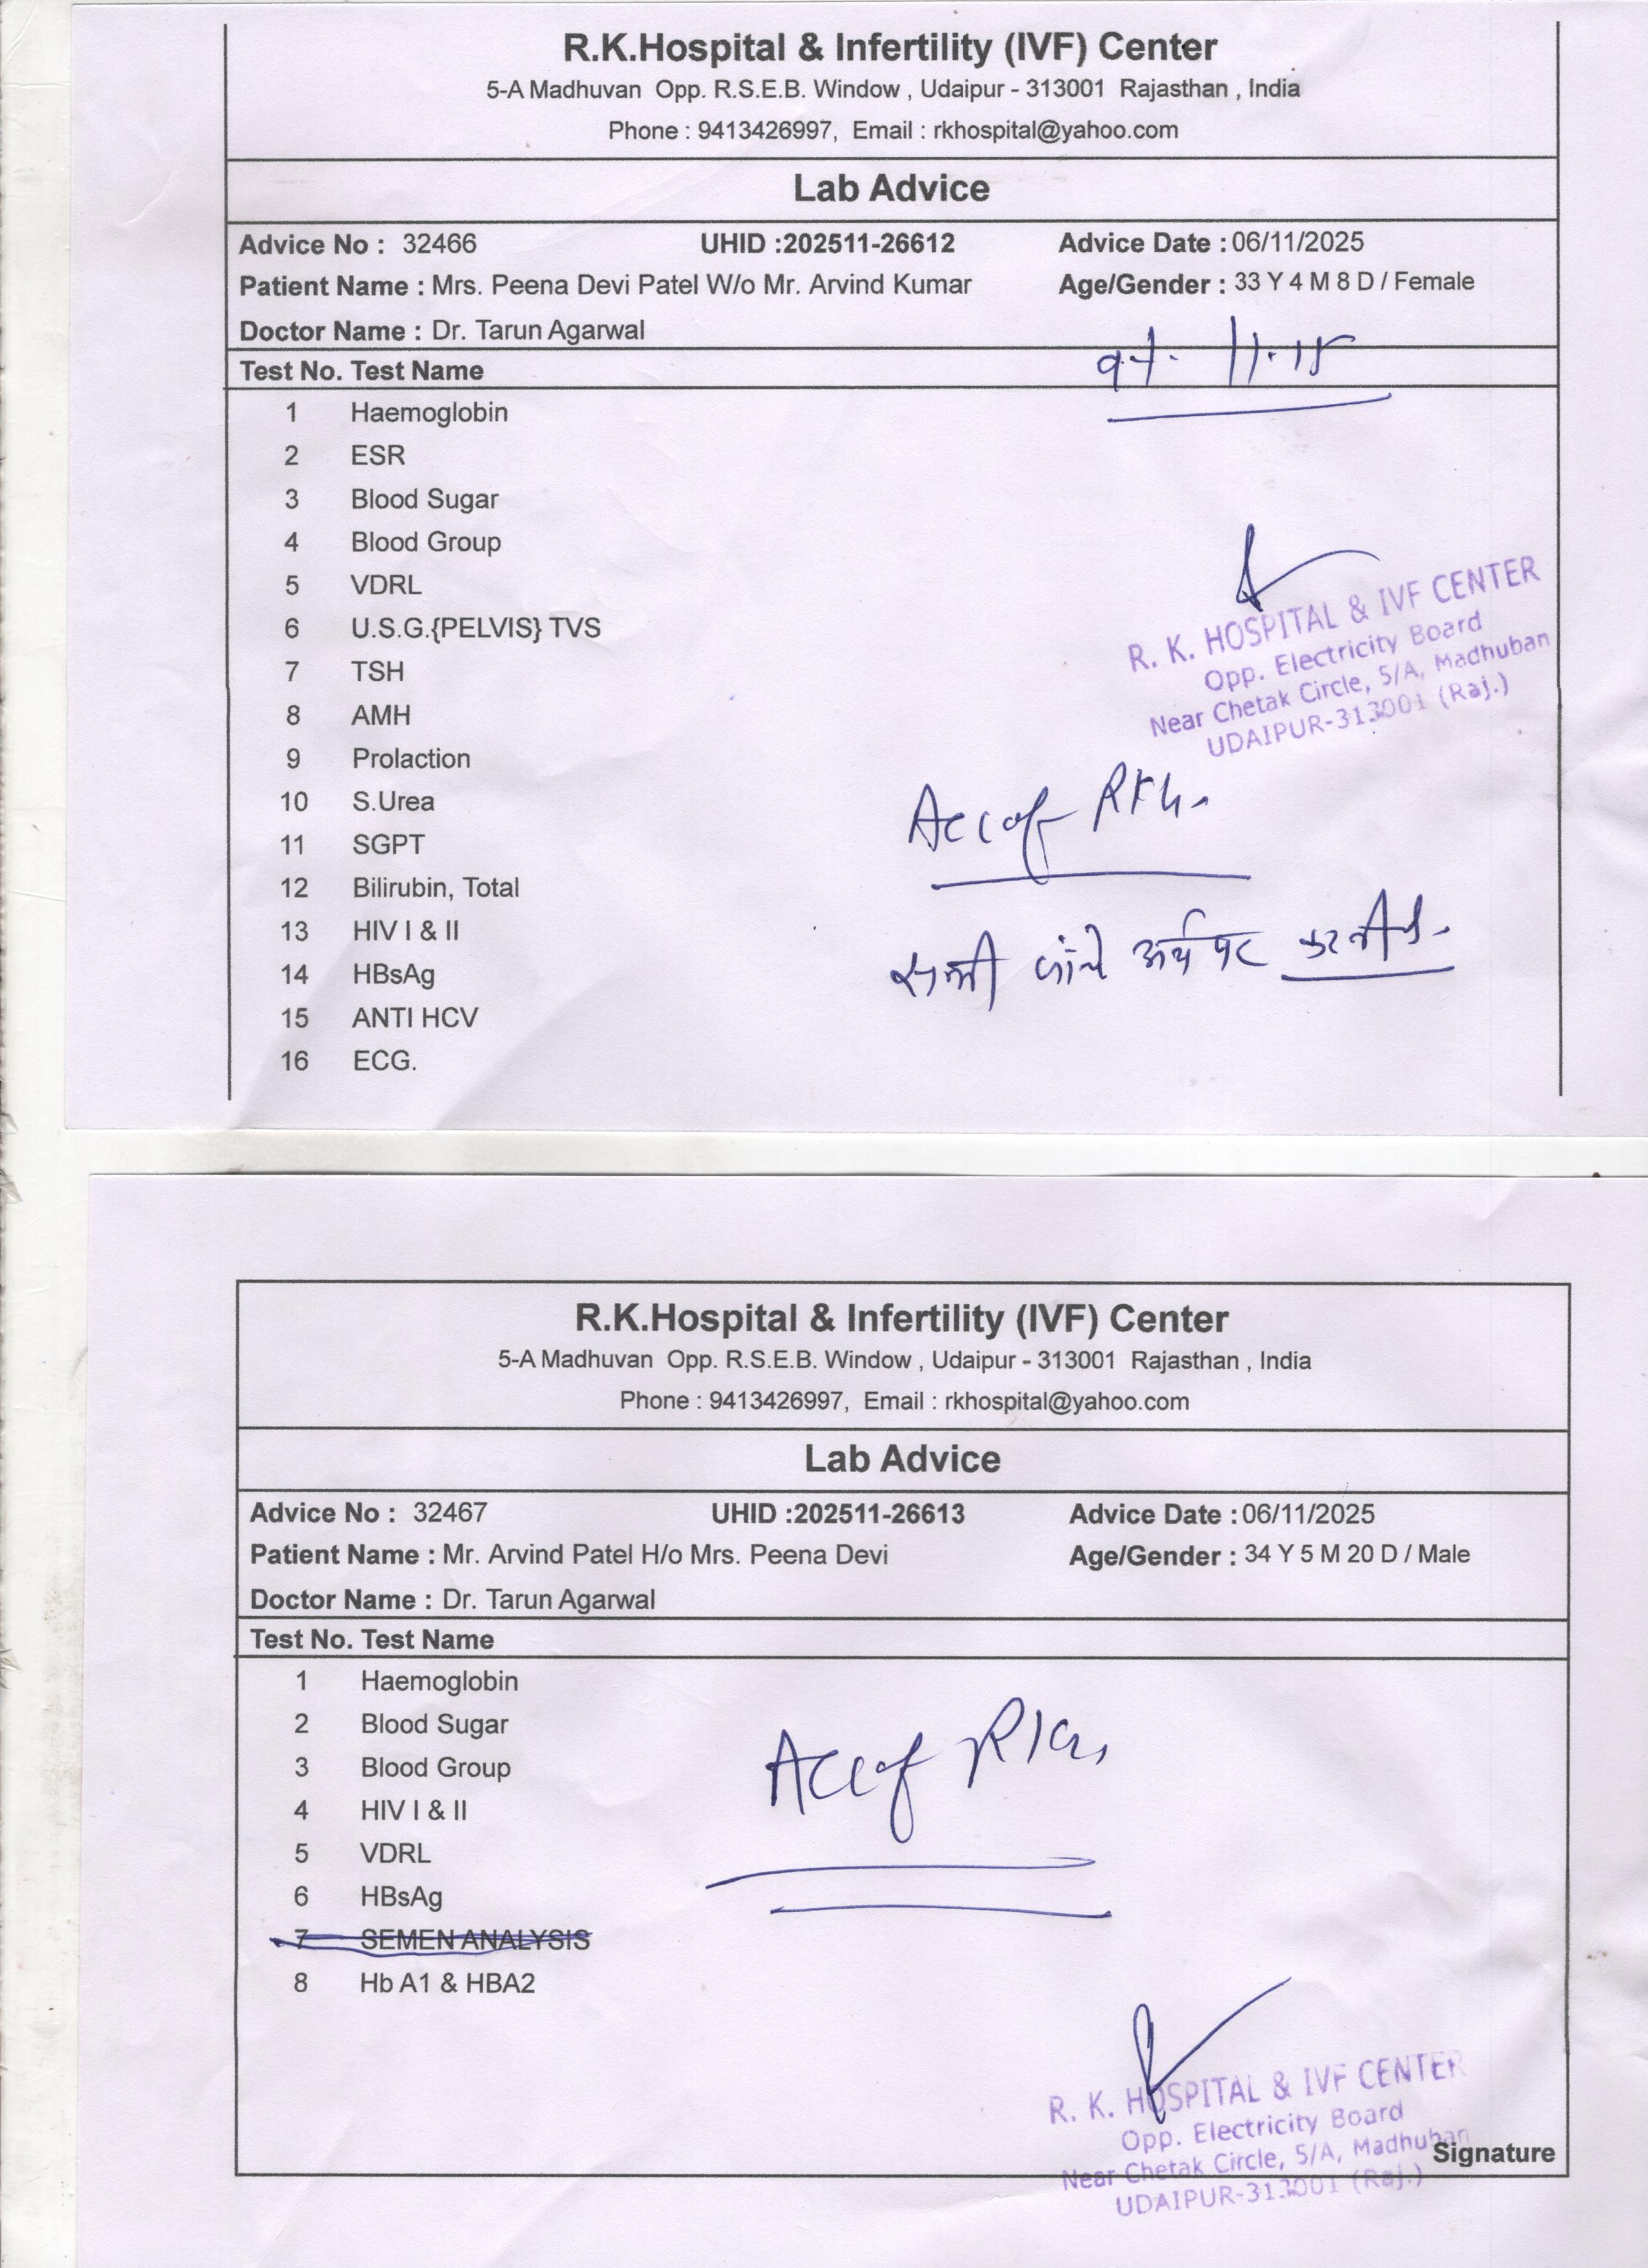 R.K.Hospital & Infertility (IVF) Center
5-A Madhuvan Opp. R.S.E.B. Window , Udaipur - 313001 Rajasthan , India
Phone : 9413426997, Email : rkhospital@yahoo.com
Lab Advice
Advice No : 32466 UHID :202511-26612 Advice Date : 06/11/2025
Patient Name : Mrs. Peena Devi Patel W/o Mr. Arvind Kumar Age/Gender : 33 Y 4 M 8 D / Female
Doctor Name : Dr. Tarun Agarwal
Test No. Test Name
1 Haemoglobin
2 ESR
3 Blood Sugar
4 Blood Group
5 VDRL
6 U.S.G.{PELVIS} TVS
7 TSH
8 AMH
9 Prolaction
10 S.Urea
11 SGPT
12 Bilirubin, Total
13 HIV I & II
14 HBsAg
15 ANTI HCV
16 ECG.
R. K. HOSPITAL & IVF CENTER
Opp. Electricity Board
Near Chetak Circle, 5/A, Madhuban
UDAIPUR-313001 (Raj.)
सभी जांचे अर्थ पर
R.K.Hospital & Infertility (IVF) Center
5-A Madhuvan Opp. R.S.E.B. Window , Udaipur - 313001 Rajasthan , India
Phone : 9413426997, Email : rkhospital@yahoo.com
Lab Advice
Advice No : 32467 UHID :202511-26613 Advice Date : 06/11/2025
Patient Name : Mr. Arvind Patel H/o Mrs. Peena Devi Age/Gender : 34 Y 5 M 20 D / Male
Doctor Name : Dr. Tarun Agarwal
Test No. Test Name
1 Haemoglobin
2 Blood Sugar
3 Blood Group
4 HIV I & II
5 VDRL
6 HBsAg
7 SEMEN ANALYSIS
8 Hb A1 & HBA2
R. K. HOSPITAL & IVF CENTER
Opp. Electricity Board
Near Chetak Circle, 5/A, Madhuban
Signature
UDAIPUR-313001 (Raj.)